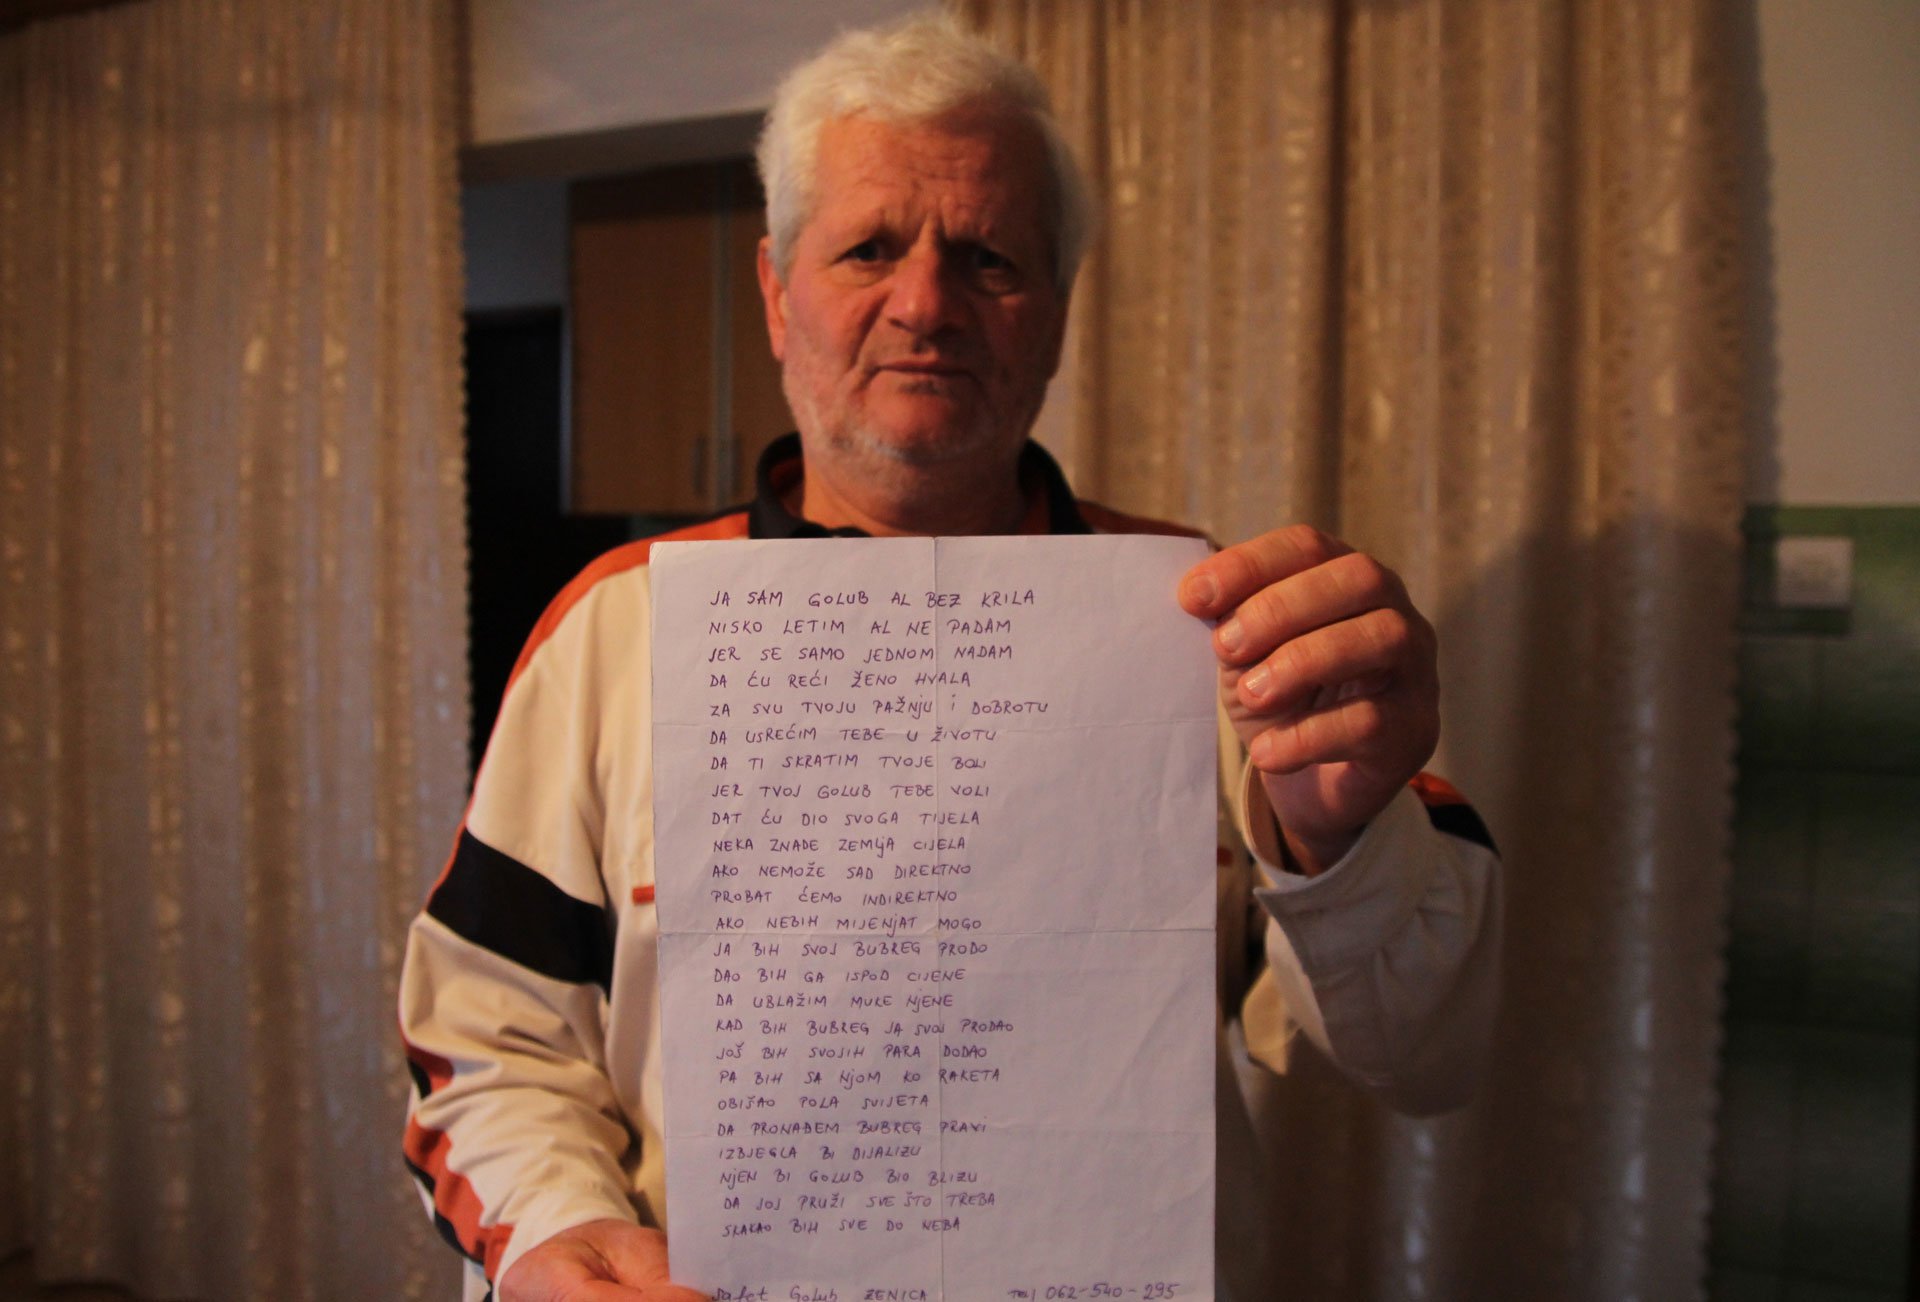 JA SAM GOLUB AL BEZ KRILA
NISKO LETIM AL NE PADAM
JER SE SAMO JEDNOM NADAM
DA ĆU REĆI ŽENO HVALA
ZA SVU TVOJU PAŽNjU i DOBROTU
DA USREĆIM TEBE U ŽIVOTU
DA TI SKRATIM TVOJE BOLI
JER TVOJ GOLUB TEBE VOLI
DAT ĆU DIO SVOGA TIJELA
NEKA ZNADE ZEMljA CIJELA
AKO NEMOŽE SAD DIREKTNO
PROBAT ĆEMO INDIREKTNO
AKO NEBIH MIJENjAT MOGO
JA BIH SVOJ BUBREG PRODO
DAO BIH GA ISPOD CIJENE
DA UBLAŽIM MUKE NjENE
KAD BIH BUBREG JA SVOJ PRODAO
JOŠ BIH SVOJIH PARA DODAO
PA BIH SA NjOM KO RAKETA
OBIŠAO POLA SVIJETA
DA PRONAĐEM BUBREG PRAVI
IZBJEGLA BI DIJALIZU
NjEN BI GOLUB BIO BLIZU
DA JOJ PRUŽI SVE ŠTO TREBA
SKAKAO BIH SVE DO NEBA
Safet Golub ZENICA TEL 062-540-295